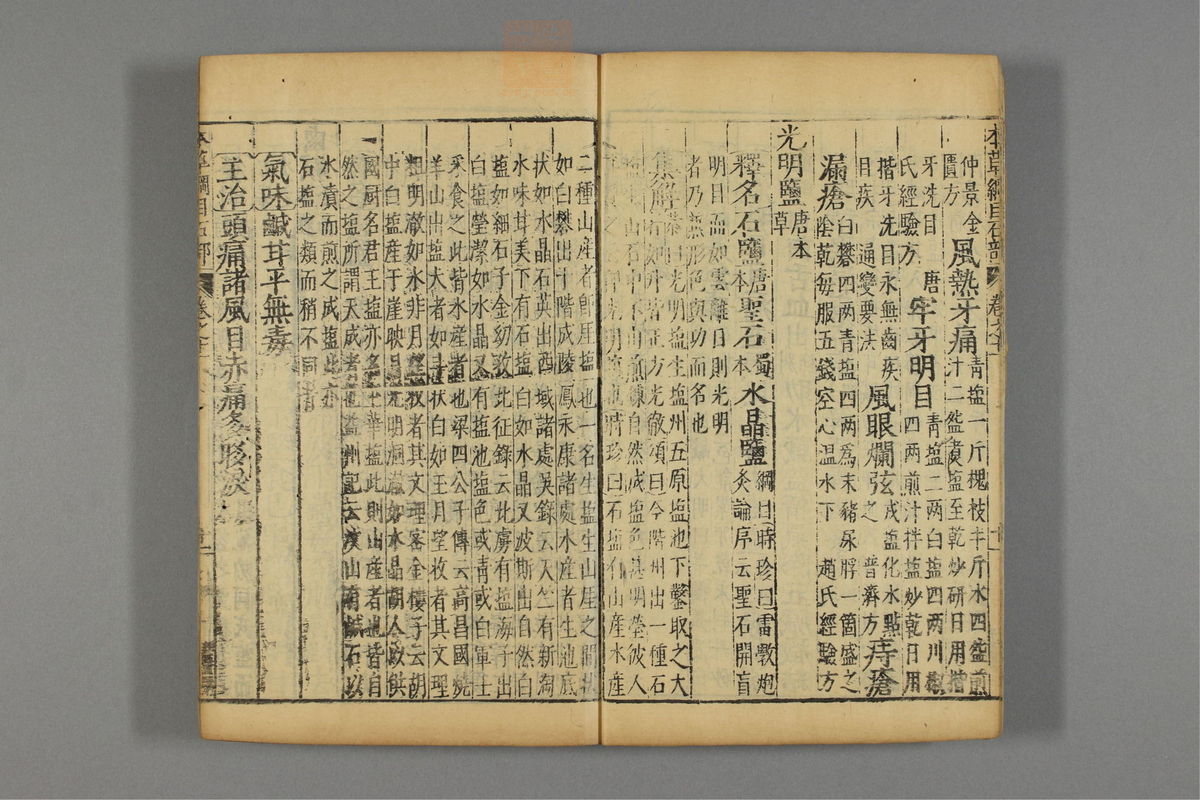 本草綱目石部 卷之十一
仲景金 風熱牙痛 青塩一斤槐枝半斤水四盌煎
匱方 汁二盌煑塩至乾炒研日用揩
牙洗目 唐 牢牙明目 青塩二兩白塩四兩川椒
氏經驗方 四兩煎汁拌塩炒乾日用
揩牙洗目永無齒疾 風眼爛弦 戎塩化水點
目疾 通變要法 之 普濟方 痔瘡
漏瘡 白礬四兩青塩四兩爲末豬尿脬一箇盛之
陰乾每服五錢空心温水下 趙氏經驗方
光明鹽 唐本草
釋名石鹽 唐本 聖石 蜀本 水晶鹽 綱目 時珍曰雷斆炮
炙論序云聖石開盲
明目而如雲離日則光明
者乃兼形色與功而名也
集解 恭曰光明塩生塩州五原塩池下鑿取之大
者如升皆正方光徹頌曰今階州出一種石
塩生山石中不由煎錬自然成塩色甚明瑩彼人
時珍曰石塩有山産水産
二種山産者即厓塩也一名生塩生山厓之間狀
如白礬出于階成陵鳳永康諸處水産者生池底
狀如水晶石英出西域諸處吴録云天竺有新淘
水味甘美下有石塩白如水晶又波斯出自然白
塩如細石子金幼孜北征録云北虜有塩海子出
白塩瑩潔如水晶又有塩池塩色或青或白軍士
采食之此皆水産者也梁四公子傳云高昌國燒
羊山出塩大者如斗狀白如玉月望收者其文理
粗明澈如氷非月望收者其文理密金樓子云胡
中白塩産于崖映月光明洞澈如水晶胡人以供
國厨名君王塩亦名玉華塩此則山産者也皆自
然之塩所謂天成者也益州記云汶山有鹹石以
水漬而煎之成塩此亦
石塩之類而稍不同者
氣味鹹甘平無毒
主治頭痛諸風目赤痛多眵淚